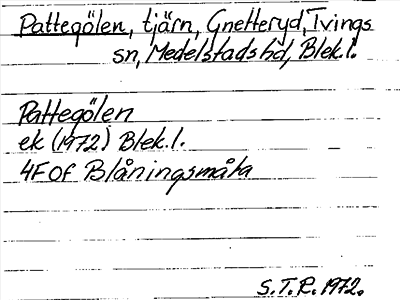 Pattegölen, tjärn, Gnetteryd, Tvings
sn, Medelstads hd, Blek.l.
Pattegölen
ek (1972) Blek.l.
4F Of Blåningsmåla
S.T.R. 1972.